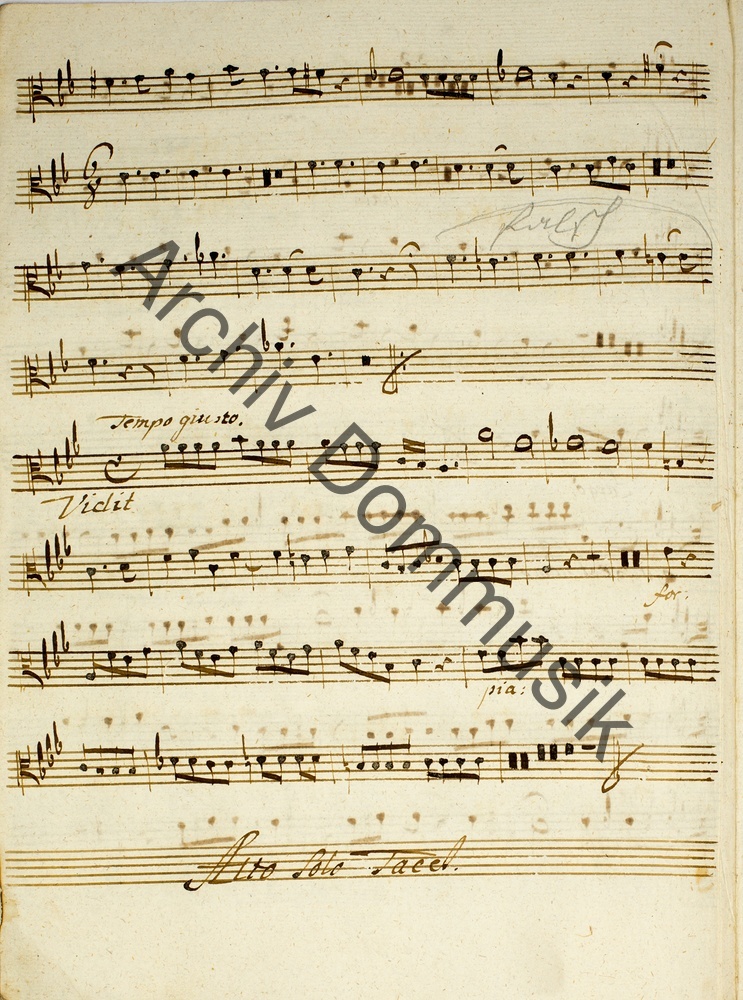 Tempo giusto.
Vidit
for:
pia:
Alto Solo Tacet.
Archiv Dommusik